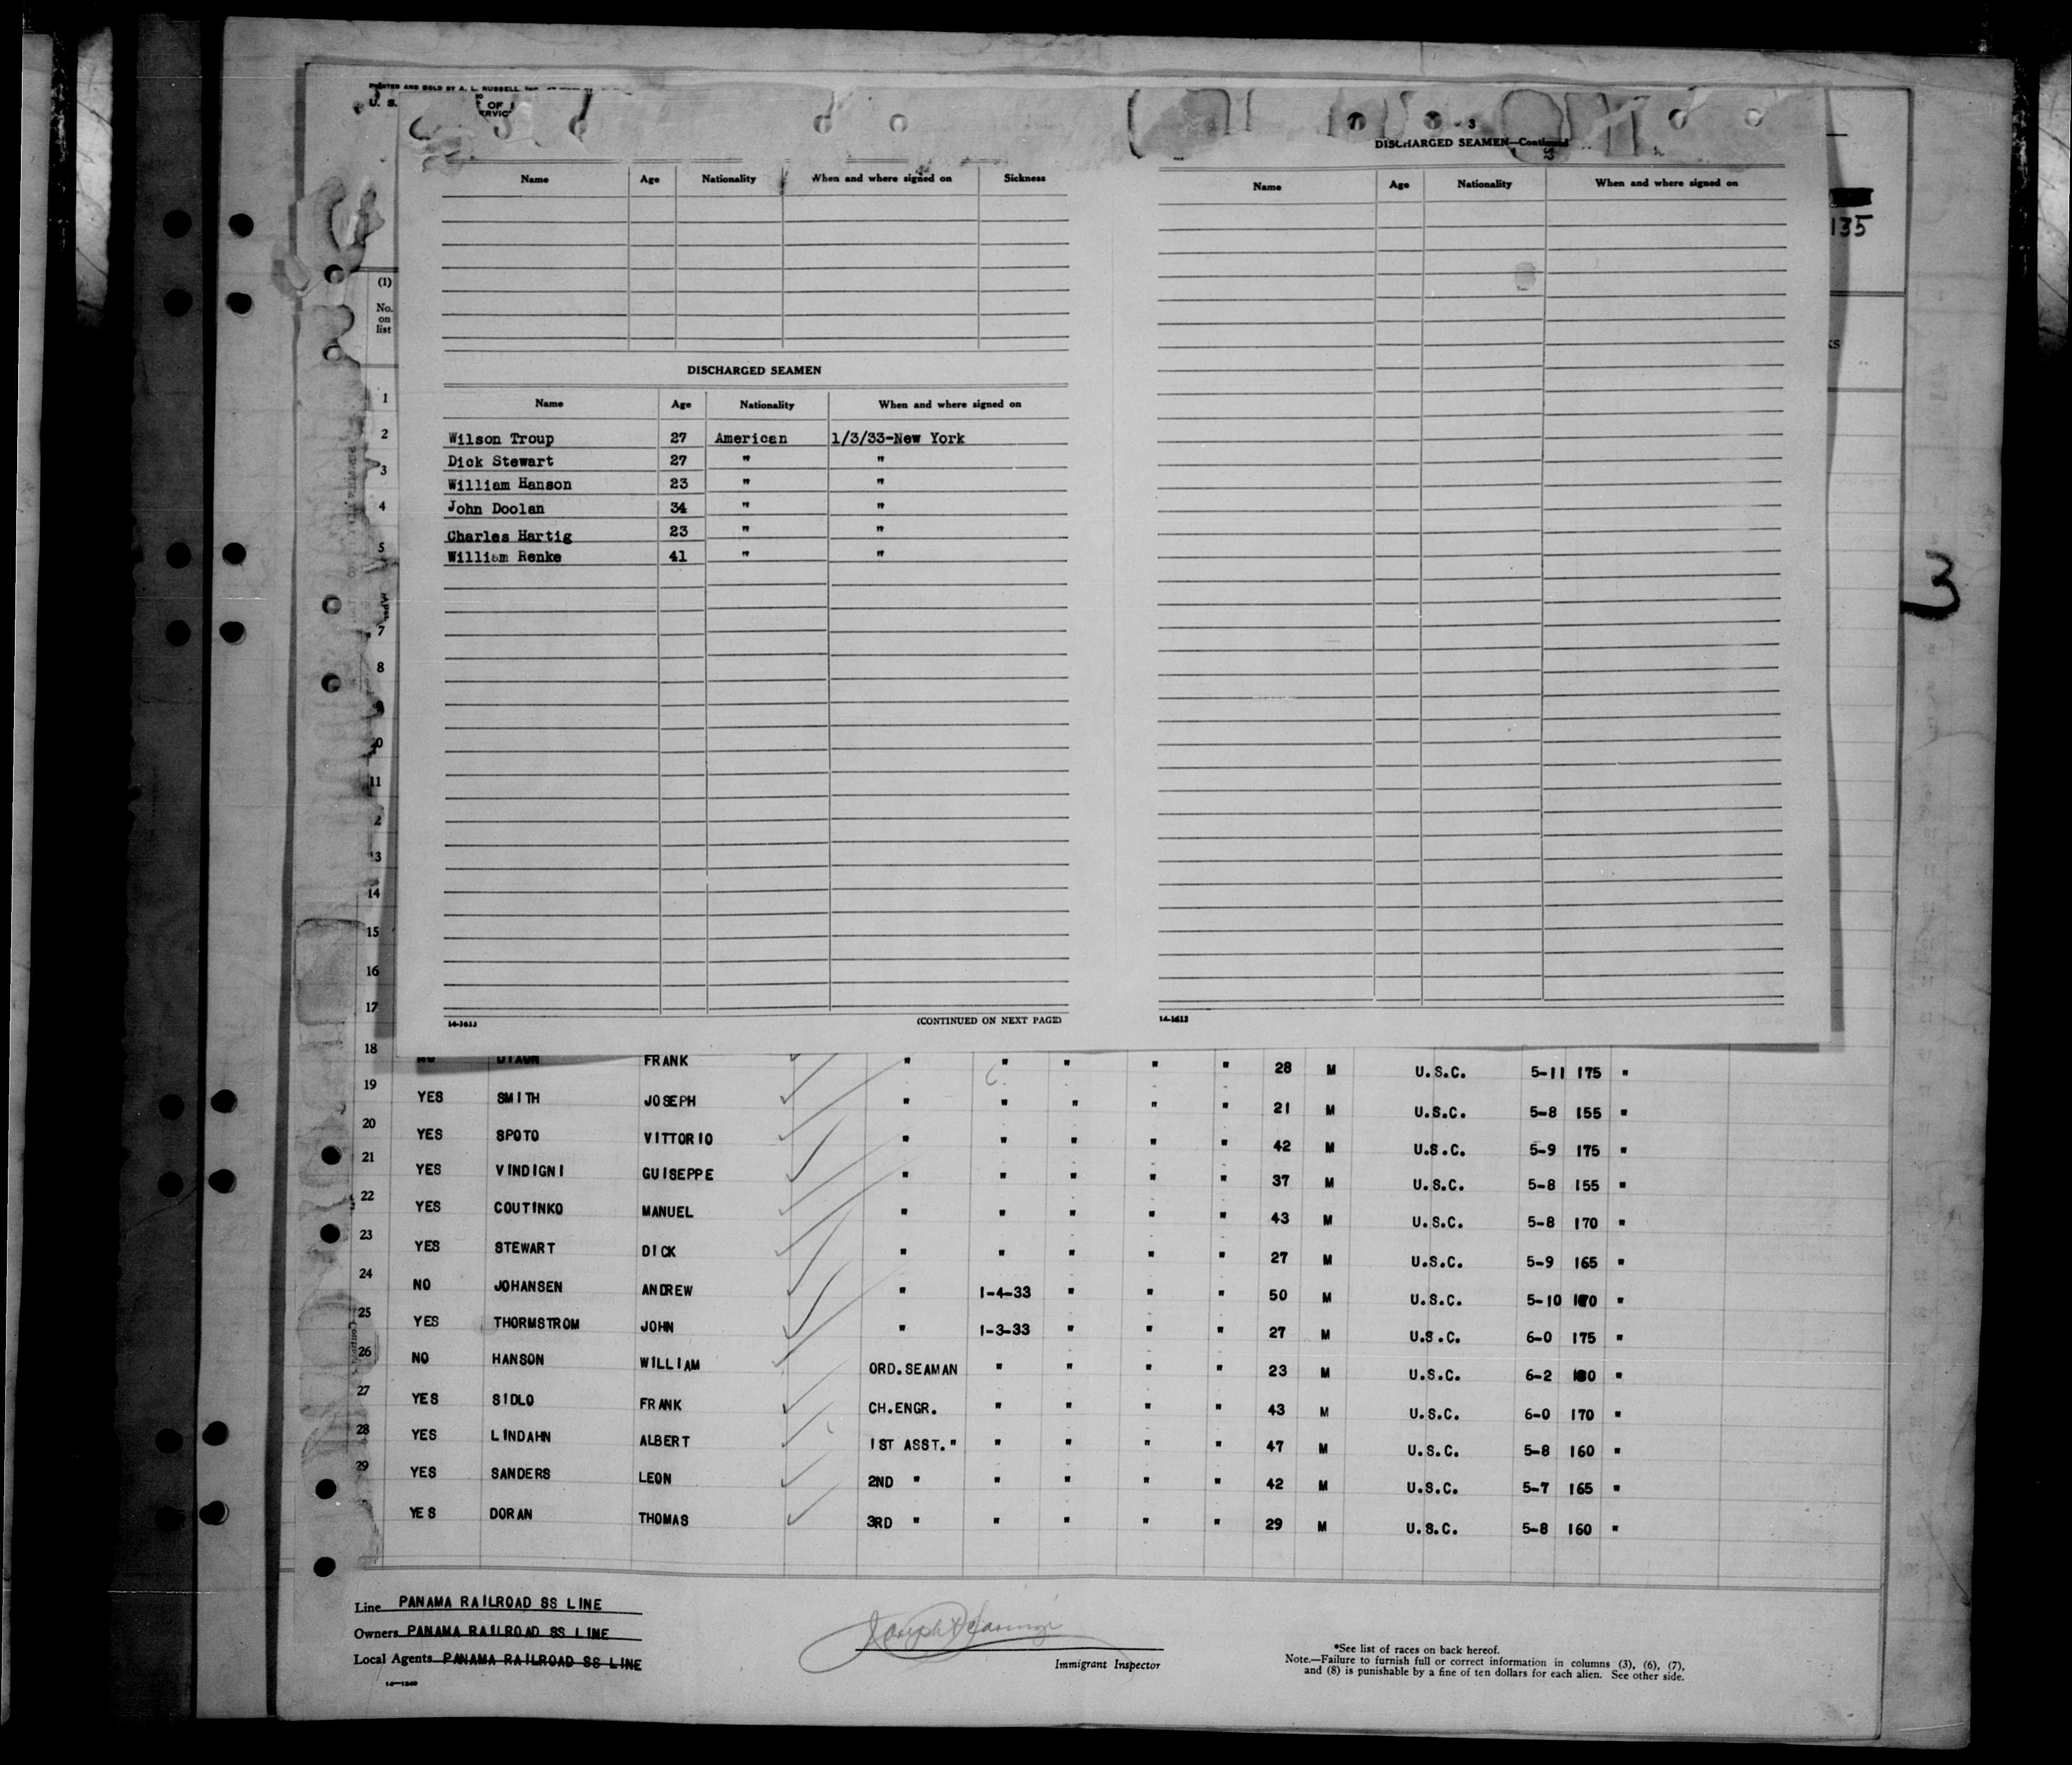 PRINTED AND SOLD BY A. L. RUSSELL
U. S.
OF
DISCHARGED SEAMEN—Continued
3
135
Name Age Nationality When and where signed on Sickness
Name Age Nationality When and where signed on
(1)
No.
on
list
DISCHARGED SEAMEN
Name Age Nationality When and where signed on
1
2 Wilson Troup 27 American 1/3/33-New York
Dick Stewart 27 " "
3 William Hanson 23 " "
4 John Doolan 34 " "
Charles Hartig 23 " "
5 William Renke 41 " "
3
7
8
11
14
15
16
17
14-1613 (CONTINUED ON NEXT PAGE) 14-1613
18 FRANK " " " " " 28 M U.S.C. 5-11 175 "
19 YES SMITH JOSEPH " " " " " 21 M U.S.C. 5-8 155 "
20 YES SPOTO VITTORIO " " " " " 42 M U.S.C. 5-9 175 "
21 YES VINDIGNI GUISEPPE " " " " " 37 M U.S.C. 5-8 155 "
22 YES COUTINKO MANUEL " " " " " 43 M U.S.C. 5-8 170 "
23 YES STEWART DICK " " " " " 27 M U.S.C. 5-9 165 "
24 NO JOHANSEN ANDREW " 1-4-33 " " " 50 M U.S.C. 5-10 "
25 YES THORMSTROM JOHN " 1-3-33 " " " 27 M U.S.C. 6-0 175 "
26 NO HANSON WILLIAM ORD.SEAMAN " " " " 23 M U.S.C. 6-2 "
27 YES SIDLO FRANK CH.ENGR. " " " " 43 M U.S.C. 6-0 170 "
28 YES LINDAHN ALBERT 1ST ASST." " " " " 47 M U.S.C. 5-8 160 "
29 YES SANDERS LEON 2ND " " " " " 42 M U.S.C. 5-7 165 "
YES DORAN THOMAS 3RD " " " " " 29 M U.S.C. 5-8 160 "
Line PANAMA RAILROAD SS LINE
Owners PANAMA RAILROAD SS LINE
Local Agents PANAMA RAILROAD SS LINE
Immigrant Inspector
*See list of races on back hereof.
Note.—Failure to furnish full or correct information in columns (3), (6), (7),
and (8) is punishable by a fine of ten dollars for each alien. See other side.